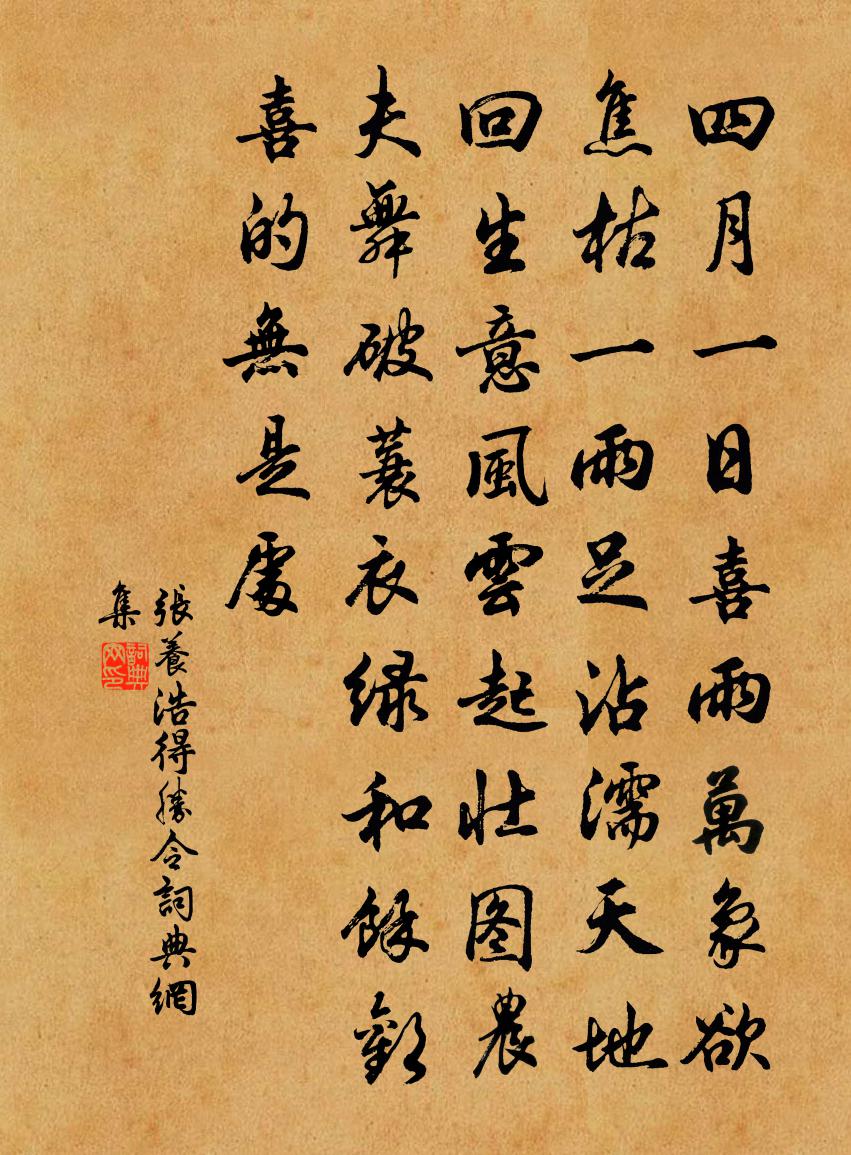 四月一日喜雨萬象欲
焦枯一雨足沾濡天地
回生意風雲起壯图農
夫舞破蓑衣绿和餘歡
喜的無是處
張養浩得勝令詞典網
集
詞典网印